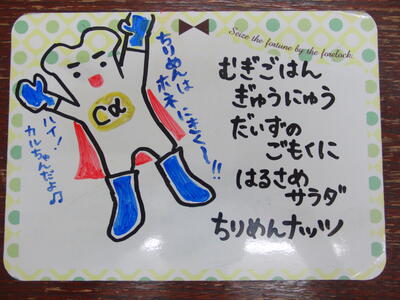 Seize the fortune by the forelock.
むぎごはん
ぎゅうにゅう
だいずの
ごもくに
はるさめ
サラダ
ちりめんナッツ
ちりめんは
ホネにきく〜!!
Ca
ハイ!
カルちゃんだよ♫